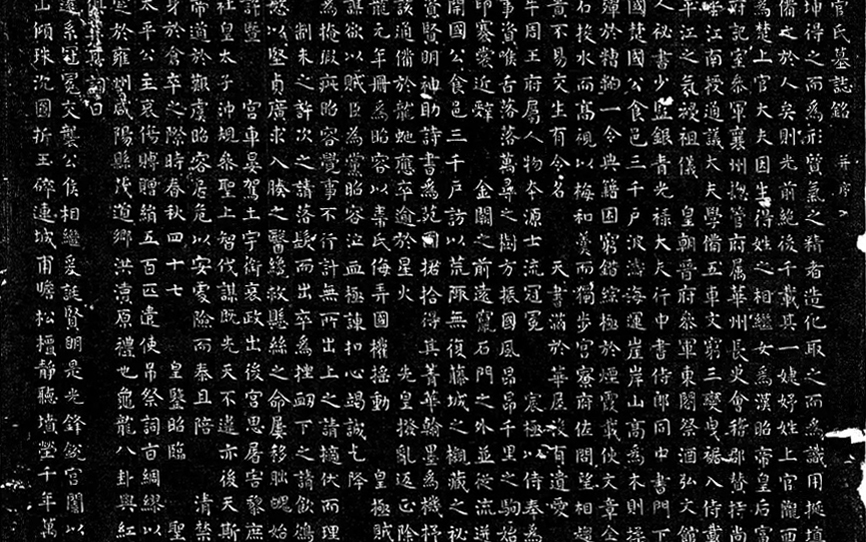 官氏墓誌銘 并序
坤得之而為形質氣之精者造化取之而為識用挺埴
備之於人矣則光前絕後千載其一婕妤姓上官隴西
為楚上官大夫因生得姓之相繼女為漢昭帝皇后富
府記室參軍襄州揔管府屬華州長史會稽郡贊持尚
江南授通議大夫學備五車文窮三變曳裾入侍載
平江之氣授祖儀 皇朝晉府參軍東閤祭酒弘文館
人祕書少監銀青光祿大夫行中書侍郎同中書門下
國楚國公食邑三千戶波濤海運崖岸山高為木則揉
殫於糟粕一令典籍困窮錯綜極於煙霞載使文章全
石投水而高視以梅和羹而獨步宮寮府佐問望相趨
貴不易交生有令名 天書滿於華屋沒有遺愛
牛周王府屬人物本源士流冠冕 宸極以侍奉為
事賓唯舌落落萬尋之樹方振國風昂昂千里之駒始
印褰裳近辭 金闕之前遠竄石門之外並從流迸
開國公食邑三千戶訪以荒陬無復藤城之櫬藏之秘
資賢明神助詩書為苑囿捃拾得其菁華翰墨為機杼
該通備於龍蛇應卒逾於星火 先皇撥亂返正除
龍元年冊為昭容以韋氏侮弄國權搖動 皇極賊
謀欲以賊臣為黨昭容泣血極諫扣心竭誠乞降
為掩瑕疵昭容覺事不行計無所出上之請擿伏而理
制未之許次之請落髮而出卒為挫衂下之請飲鴆
慜以堅貞廣求入腠之醫纔救懸絲之命屢移朏魄始
許暨 宮車晏駕土宇銜哀政出後宮思屠害黎庶
社皇太子沖規參聖上智伐謀既先天不違亦後天斯
帝道於觀虞昭容居危以安處險而泰且陪 清禁
身於倉卒之際時春秋四十七 皇鑒昭臨 聖
太平公主哀傷賻贈絹五百匹遣使弔祭詞旨綢繆以
窆於雍州咸陽縣茂道鄉洪瀆原禮也龜龍八卦與紅
其詞曰
系冠冕交襲公侯相繼爰誕賢明是光鋒銳宮闈以
山傾珠沉圓折玉碎連城甫瞻松檟靜聽墳塋千年萬